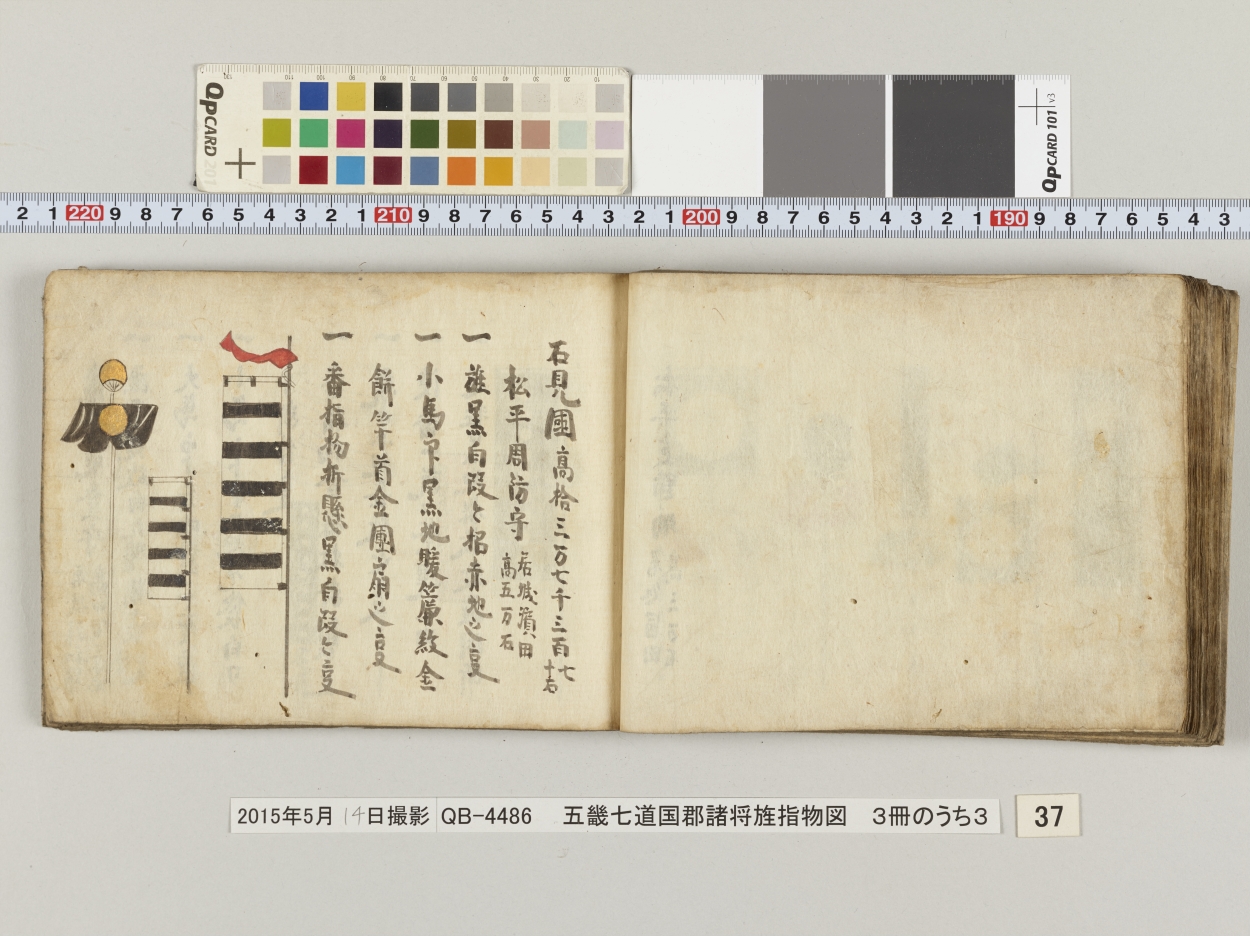 QPCARD 201
QPCARD 101 v3
2 1 220 9 8 7 6 5 4 3 2 1 210 9 8 7 6 5 4 3 2 1 200 9 8 7 6 5 4 3 2 1 190 9 8 7 6 5 4 3
石見國 高拾三万七千三百七十石
松平周防守 居城濱田 高五万石
一 旌黒白段々招赤地之
一 小馬印黒地暖簾紋金
餅竿首金團扇之
一 番指物折懸黒白段々
2015年5月14日撮影 QB-4486 五畿七道国郡諸将旌指物図 3冊のうち3
37